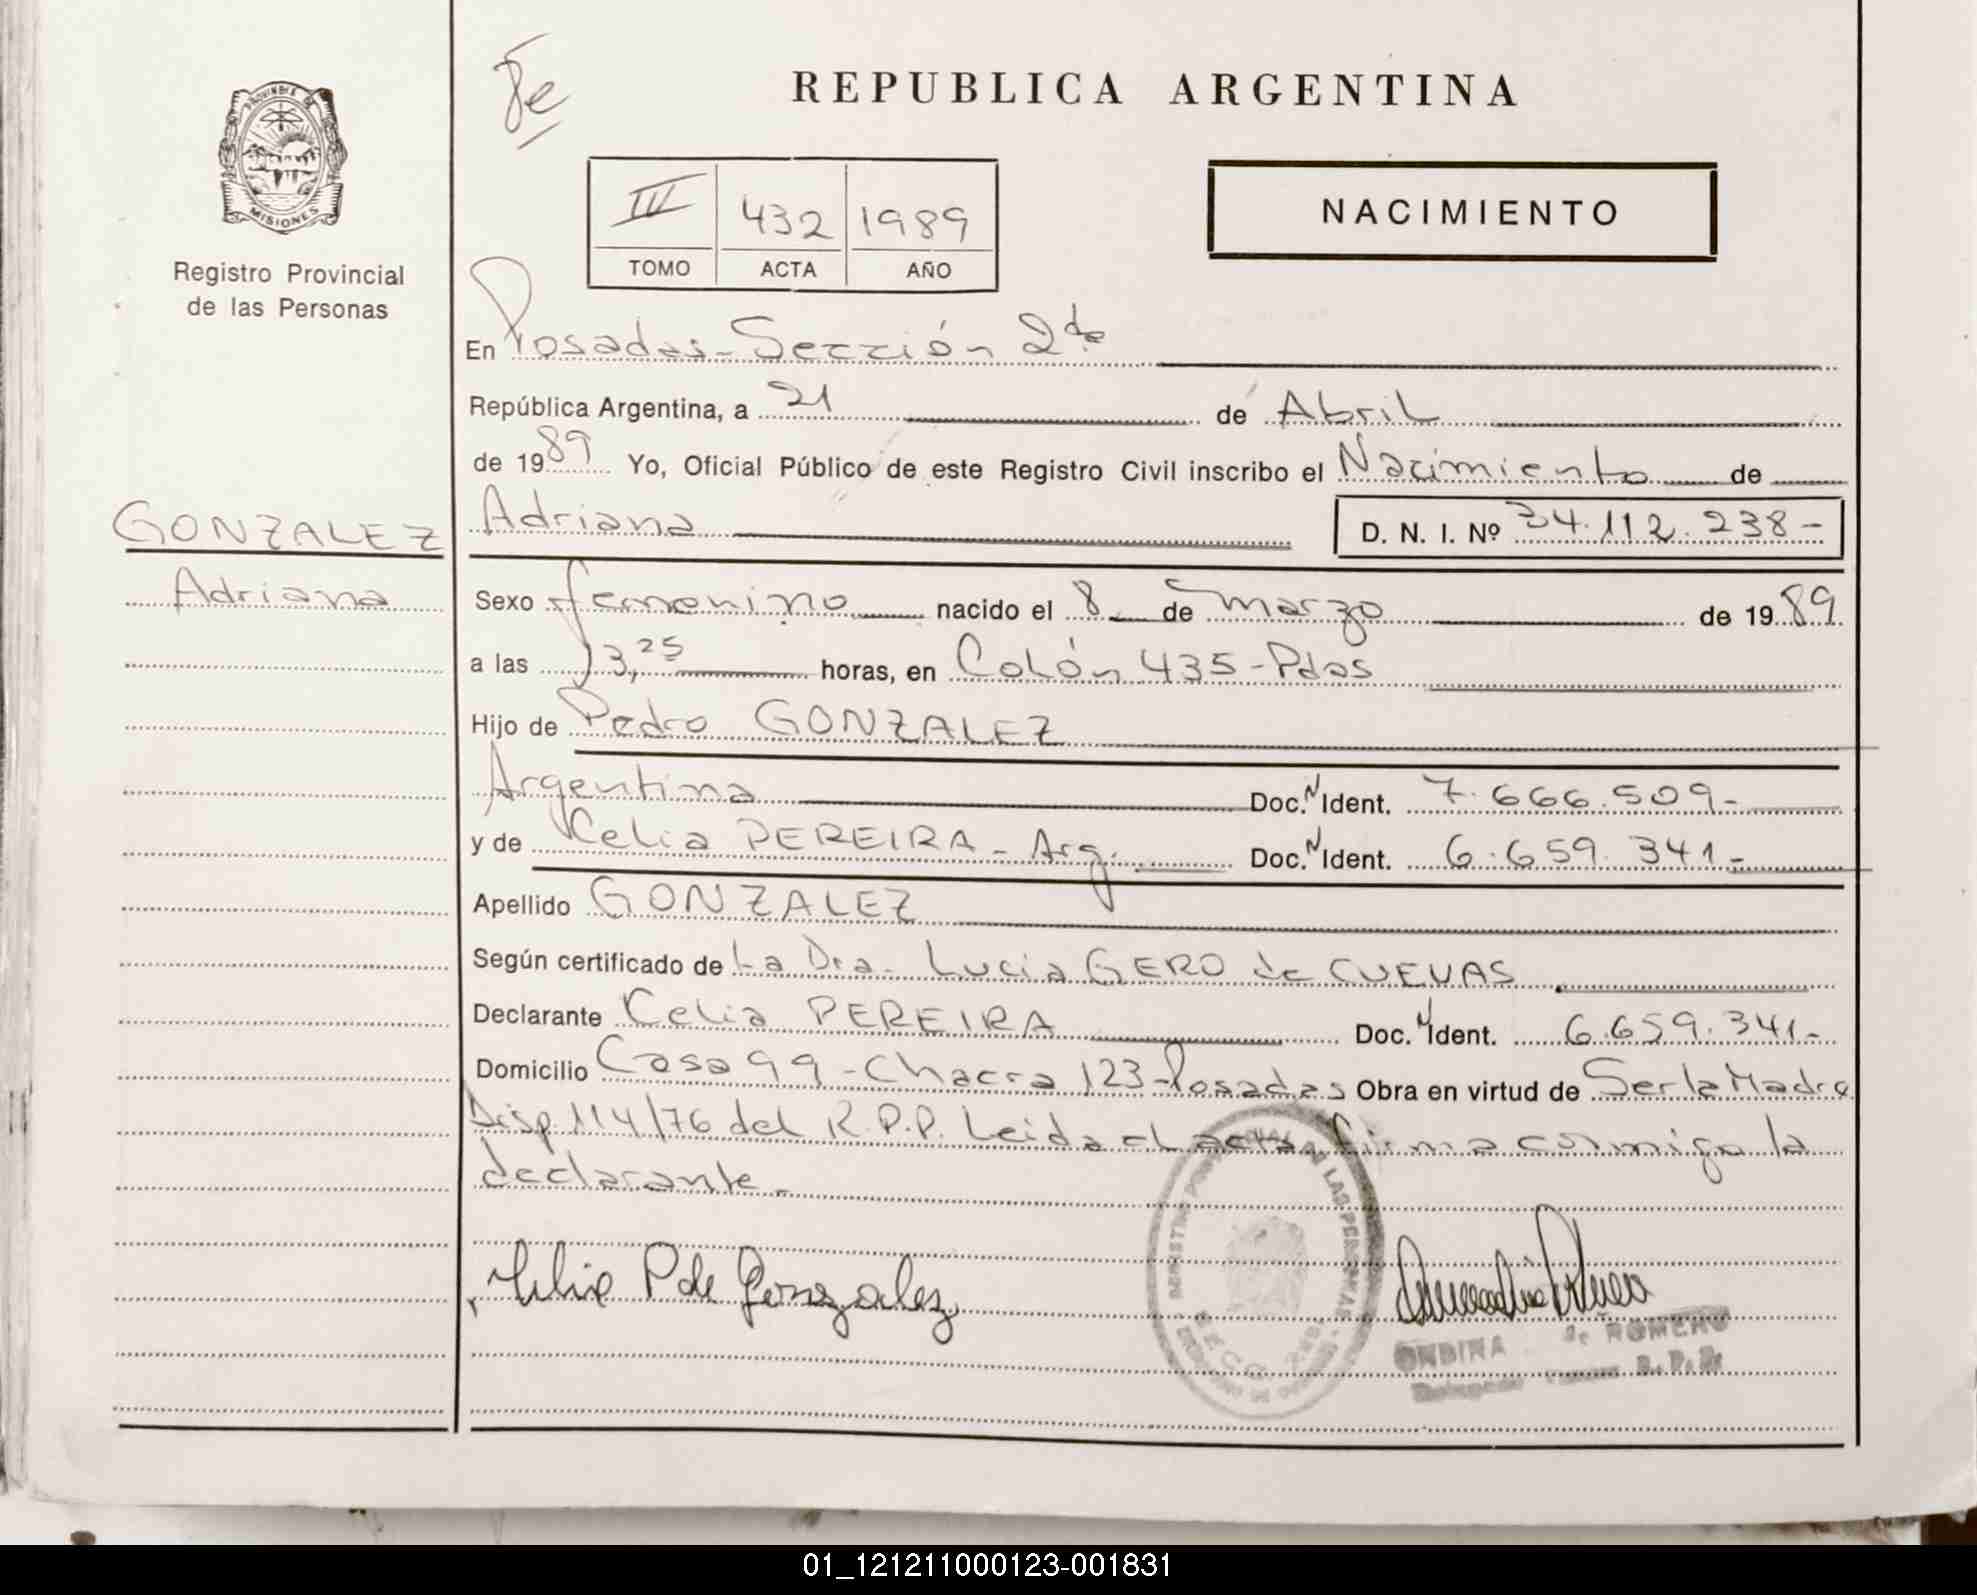 REPUBLICA ARGENTINA
PROVINCIA DE
MISIONES
Registro Provincial
de las Personas
IV 432 1989
TOMO ACTA AÑO
NACIMIENTO
En Posadas - Sección 2da
República Argentina, a 21 de Abril
de 1989 Yo, Oficial Público de este Registro Civil inscribo el Nacimiento de
GONZALEZ
Adriana
Adriana D. N. I. Nº 34.112.238-
Sexo femenino nacido el 8 de marzo de 1989
a las 13,25 horas, en Colón 435 - Pdas
Hijo de Pedro GONZALEZ
Argentina Doc. N Ident. 7.666.509-
y de Celia PEREIRA - Arg. Doc. N Ident. 6.659.341-
Apellido GONZALEZ
Según certificado de La Dra. Lucia GERO de CUEVAS
Declarante Celia PEREIRA Doc. N Ident. 6.659.341-
Domicilio Casa 99 - Chacra 123 - Posadas Obra en virtud de Ser la Madre
Disp. 114/76 del R.P.P. Leida el acta, firma conmigo la
declarante-
Celia P de Gonzalez
ONDINA de ROMERO
R.P.P.
01_121211000123-001831